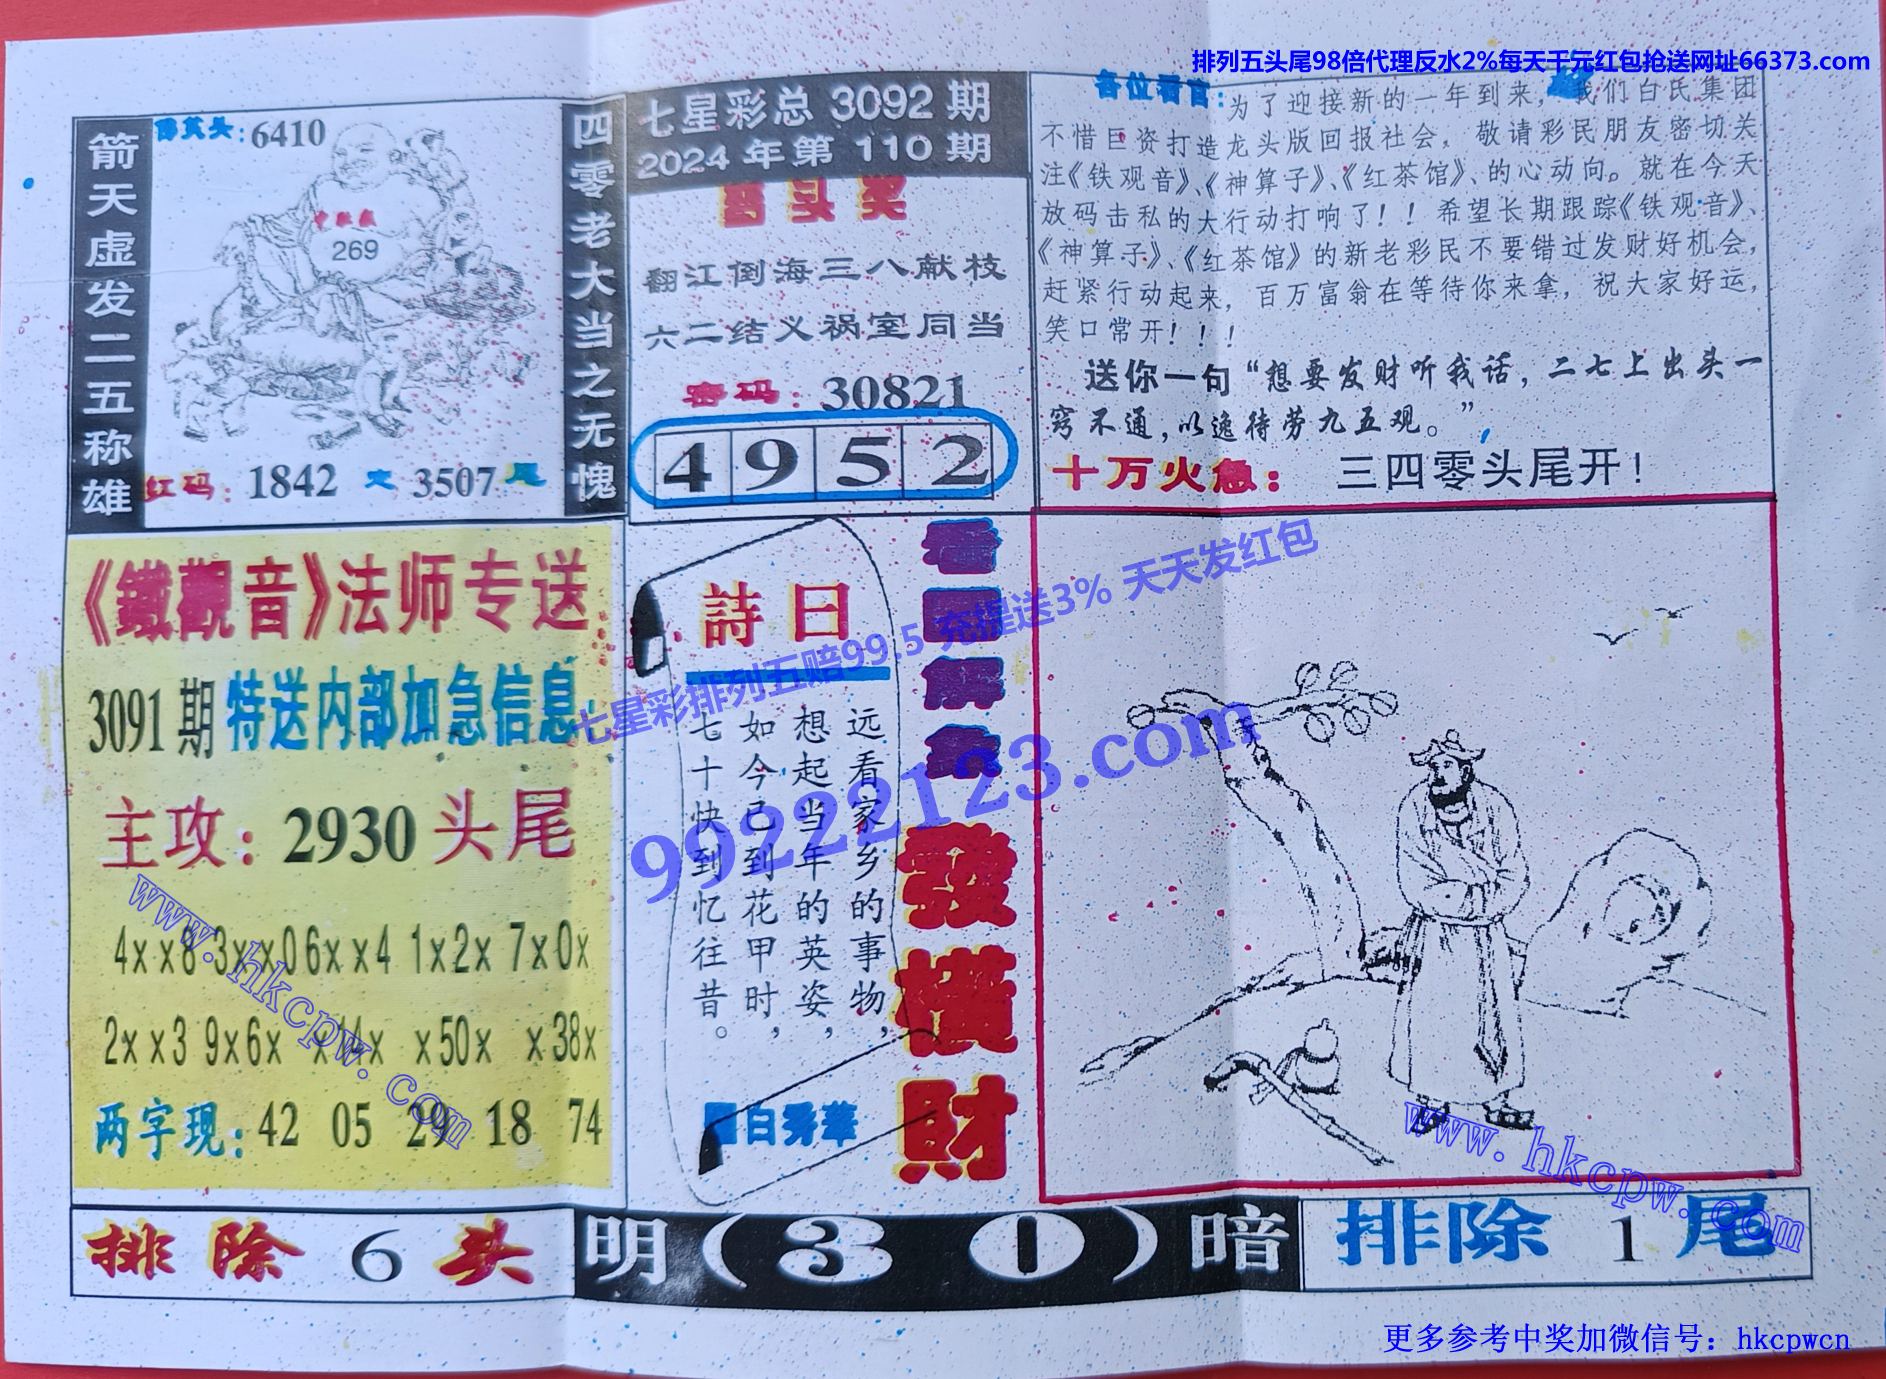 排列五头尾98倍代理反水2%每天千元红包抢送网址66373.com
箭天虚发二五称雄
6410
中肚氣
269
红码：1842 文 3507 尾
四零老大当之无愧
七星彩总 3092 期
2024 年第 110 期
翻江倒海三八献枝
六二结义祸室同当
密码：30821
4 9 5 2
各位看官：为了迎接新的一年到来，我们白氏集团
不惜巨资打造龙头版回报社会，敬请彩民朋友密切关
注《铁观音》、《神算子》、《红茶馆》、的心动向。就在今天
放码击私的大行动打响了！！希望长期跟踪《铁观音》、
《神算子》、《红茶馆》的新老彩民不要错过发财好机会，
赶紧行动起来，百万富翁在等待你来拿，祝大家好运，
笑口常开！！！
送你一句“想要发财听我话，二七上出头一
窍不通，以逸待劳九五观。”
十万火急：三四零头尾开！
《鐵觀音》法师专送
3091 期 特送内部加急信息
主攻：2930 头尾
4××8 3××0 6××4 1×2× 7×0×
2××3 9×6× ×14× ×50× ×38×
两字现：42 05 29 18 74
詩曰
远看家乡的事物，
想起当年的英姿，
如今已到花甲时，
七十快到忆往昔。
白秀華
看圖解象
發橫財
七星彩排列五赔99.5 充提送3% 天天发红包
99222123.com
www.hkcpw.com
www.hkcpw.com
排除 6 头
明（30）暗
排除 1 尾
更多参考中奖加微信号：hkcpwcn